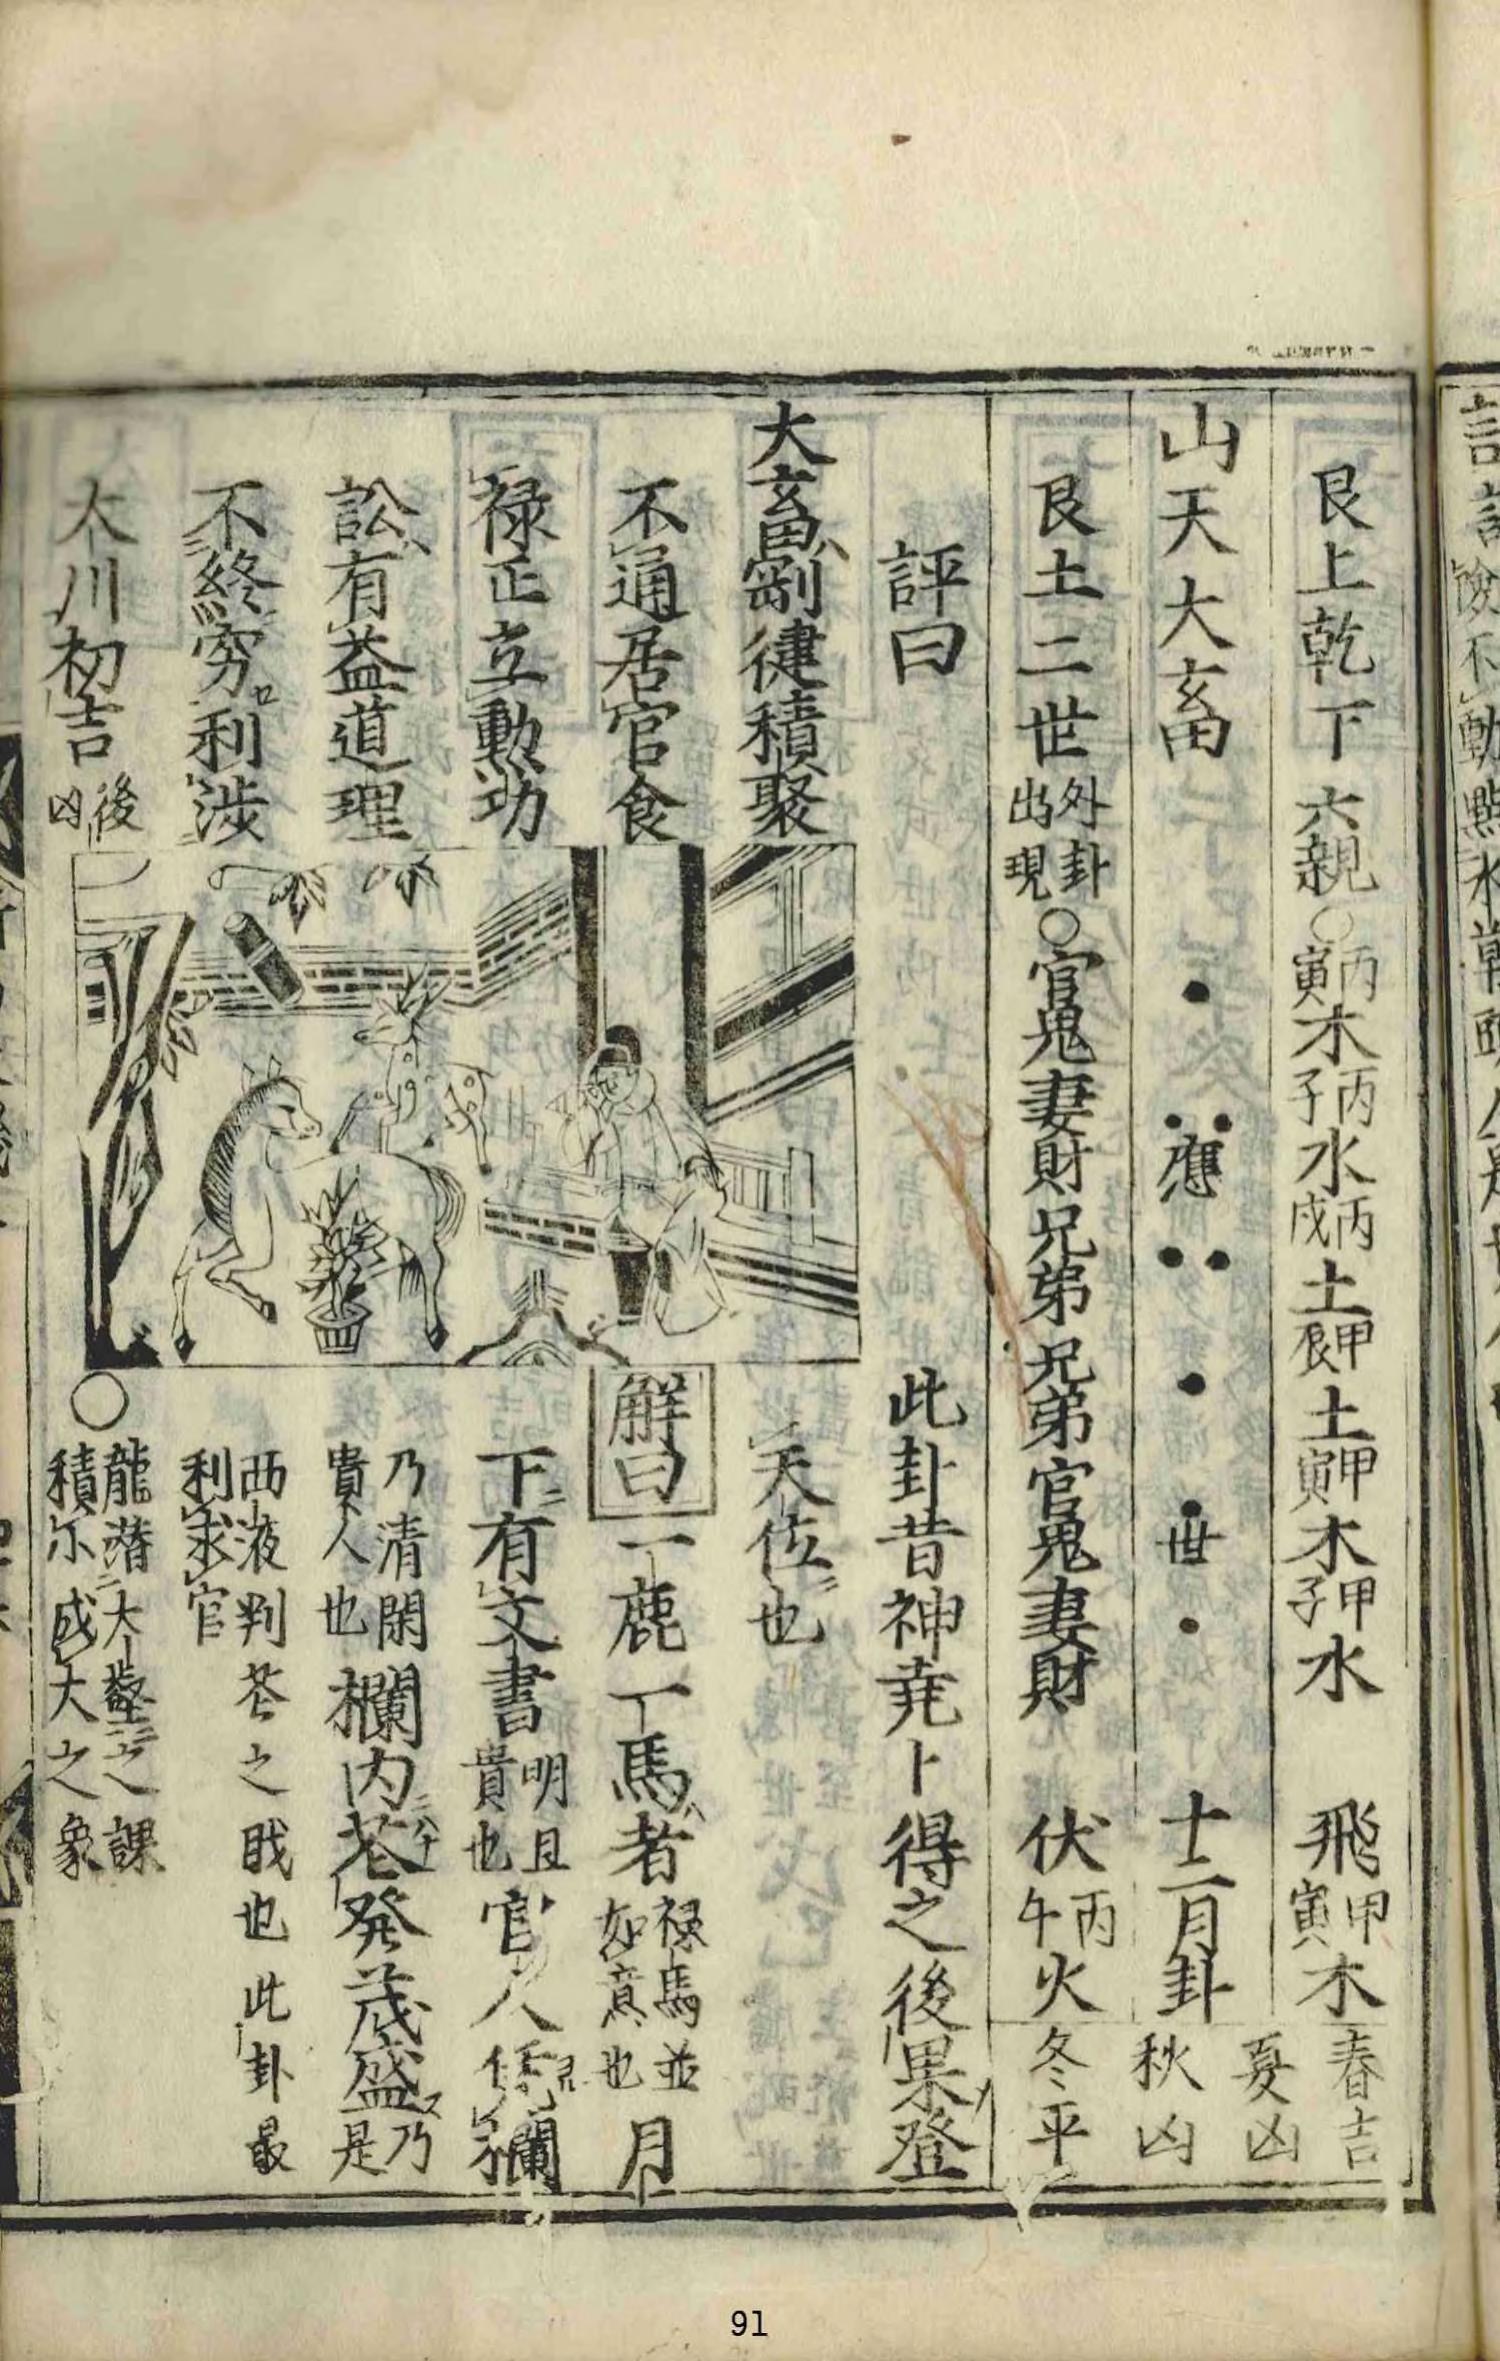 艮上乾下 六親○丙寅木丙子水丙戌土甲辰土甲寅木甲子水 飛甲寅木 春吉
夏凶
山天大畜 應 世 十二月卦 秋凶
艮土二世 外卦出現○官鬼妻財兄弟兄弟官鬼妻財 伏丙午火 冬平
評曰 此卦昔神堯卜得之後果登
天位也
大畜剛健積聚
不通居官食
禄正立勳功
訟有益道理
不終窮利涉
大川初吉後凶
解曰一鹿一馬者禄馬並如意也月
下有文書明且貴也官人 欄
乃清閑貴人也欄内花發茂盛乃是
西液判花之戝也此卦最利求官
○龍潛大壑之課
積小成大之象
91